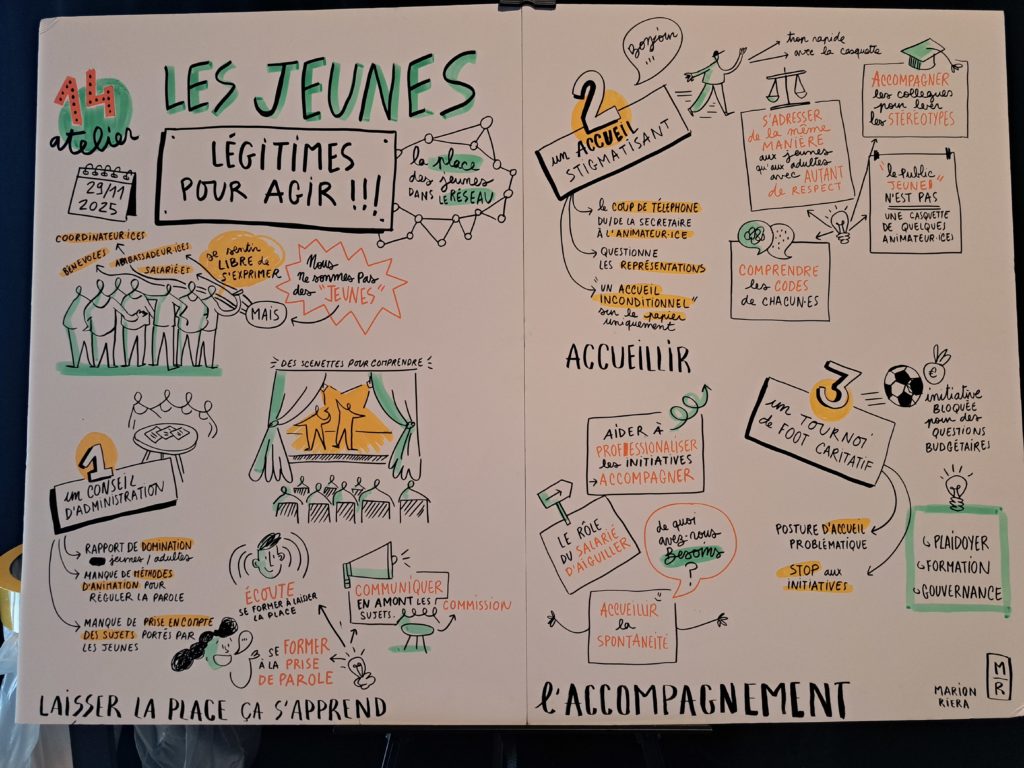 14
atelier
29/11
2025
LES JEUNES
LÉGITIMES
POUR AGIR !!!
la place
des jeunes
DANS LE RÉSEAU
COORDINATEUR·ICES
BÉNÉVOLES
AMBASSADEUR·ICES
SALARIÉ·ES
se sentir
LIBRE de
S'EXPRIMER
MAIS
Nous
ne sommes pas
des "JEUNES"
DES SCENETTES POUR COMPRENDRE
1
un CONSEIL
D'ADMINISTRATION
RAPPORT DE DOMINATION
jeunes / adultes
MANQUE DE MÉTHODES
D'ANIMATION POUR
RÉGULER LA PAROLE
MANQUE DE PRISE EN COMPTE
DES SUJETS PORTÉS PAR
LES JEUNES
ÉCOUTE
SE FORMER À LAISSER
LA PLACE
COMMUNIQUER
EN AMONT LES
SUJETS.
COMMISSION
SE FORMER
À LA PRISE
DE PAROLE
LAISSER LA PLACE ÇA S'APPREND
2
un ACCUEIL
STIGMATISANT
Bonjoir
...
trop rapide
avec la casquette
ACCOMPAGNER
les collègues
pour lever
les STÉRÉOTYPES
S'ADRESSER
DE LA MÊME
MANIÈRE
aux jeunes
qu'aux adultes
avec AUTANT
de RESPECT
"le public
JEUNE"
N'EST PAS
UNE CASQUETTE
DE QUELQUES
ANIMATEUR·ICES
le COUP DE TÉLÉPHONE
DU/DE LA SECRÉTAIRE
À L'ANIMATEUR·ICE
QUESTIONNE
LES REPRÉSENTATIONS
"UN ACCUEIL
INCONDITIONNEL"
sur le papier
uniquement
COMPRENDRE
les CODES
DE CHACUN·ES
ACCUEILLIR
3
un TOURNOI
de FOOT CARITATIF
€
initiative
BLOQUÉE
pour des
QUESTIONS
BUDGÉTAIRES
POSTURE D'ACCUEIL
PROBLÉMATIQUE
STOP aux
INITIATIVES
PLAIDOYER
FORMATION
GOUVERNANCE
AIDER À
PROFESSIONALISER
les INITIATIVES
→ ACCOMPAGNER
LE RÔLE
DU SALARIÉ
D'AIGUILLER
de quoi
avez-vous
Besoins
?
ACCUEILLIR
la
SPONTANÉITÉ
l'ACCOMPAGNEMENT
MARION
RIERA
M
R